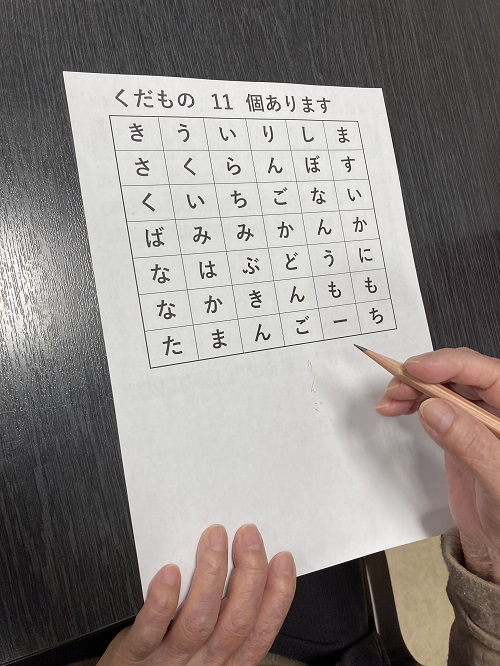 くだもの 11 個あります
き う い り し ま
さ く ら ん ぼ す
く い ち ご な い
ば み み か ん か
な は ぶ ど う に
な か き ん も も
た ま ん ご ー ち
りんご